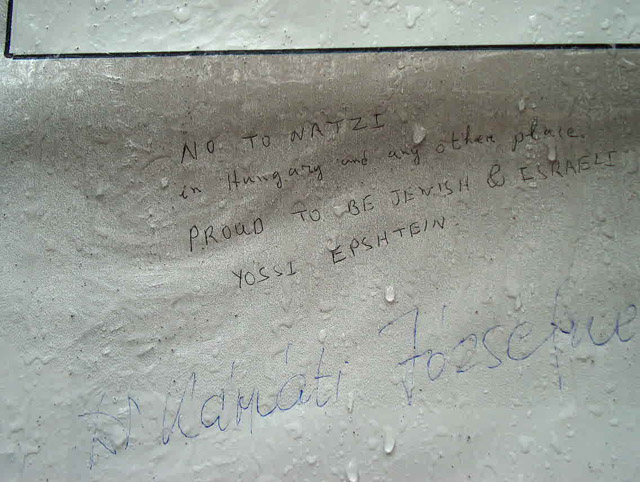 NO TO NATZI
in Hungary and any other place.
PROUD TO BE JEWISH & ESRAELI
YOSSI EPSHTEIN